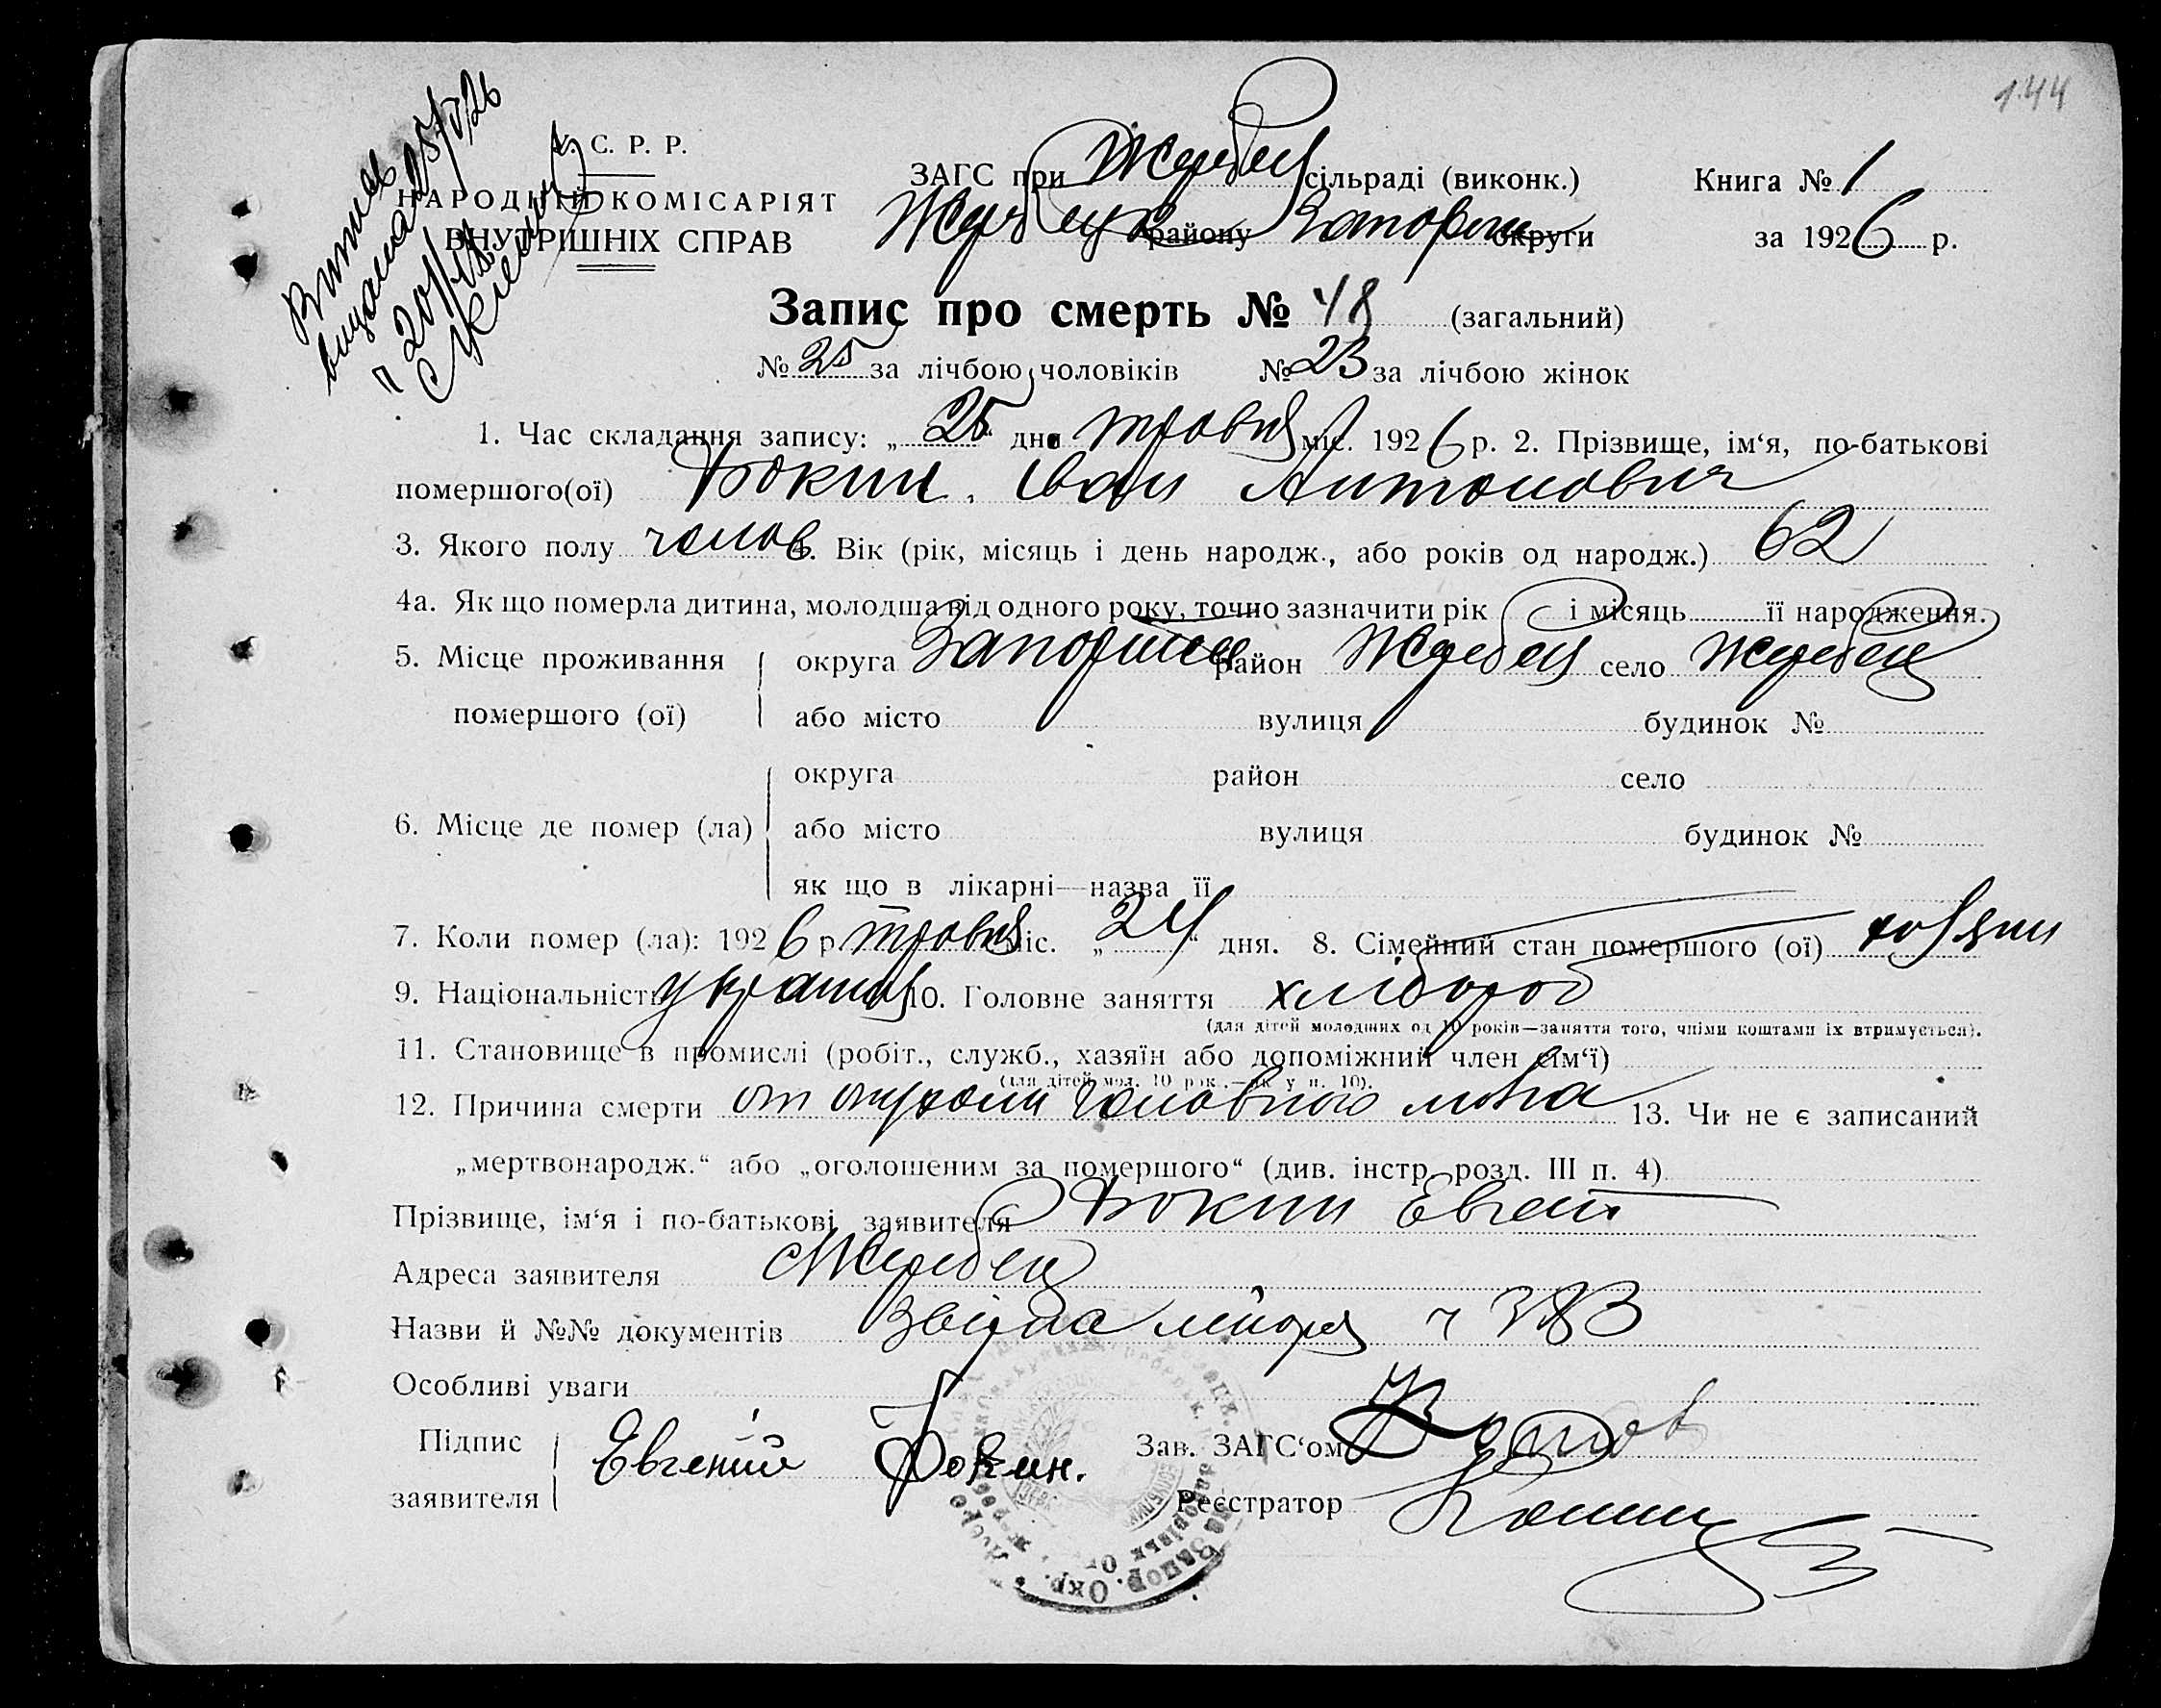 144
У. С. Р. Р.
НАРОДНІЙ КОМІСАРІЯТ
ВНУТРІШНІХ СПРАВ
Витяг
видана 25/V 26
ЗАГС при Жеребец сільраді (виконк.)
Жеребецк району Запоріж округи
Книга № 1
за 1926 р.
Запис про смерть № 48 (загальний)
№ 25 за лічбою чоловіків № 23 за лічбою жінок
1. Час складання запису: „25“ дня травня міс. 1926 р. 2. Прізвище, ім‘я, по-батькові
помершого(ої) Фокин Іван Антонович
3. Якого полу чолов 4. Вік (рік, місяць і день народж., або років од народж.) 62
4а. Як що померла дитина, молодша від одного року, точно зазначити рік і місяць її народження.
5. Місце проживання помершого (ої) округа Запоріжж район Жеребец село Жеребец
або місто вулиця будинок №
6. Місце де помер (ла) округа район село
або місто вулиця будинок №
як що в лікарні—назва її
7. Коли помер (ла): 1926 р. травня міс. „24“ дня. 8. Сімейний стан помершого (ої)
9. Національність україн 10. Головне заняття хлібороб
(для дітей молодших од 10 років—заняття того, чиїми коштами їх втримується).
11. Становище в промислі (робіт., служб., хазяїн або допоміжний член сім‘ї)
(для дітей мол. 10 рок.—як у п. 10).
12. Причина смерти от опухоли головного мозга 13. Чи не є записаний
„мертвонародж.“ або „оголошеним за помершого“ (див. інстр. розд. III п. 4)
Прізвище, ім‘я і по-батькові заявителя Фокин Евген
Адреса заявителя Жеребец
Назви й №№ документів
Особливі уваги
Підпис заявителя Евгений Фокин.
Зав. ЗАГС‘ом
Реєстратор
Запор. Окр.